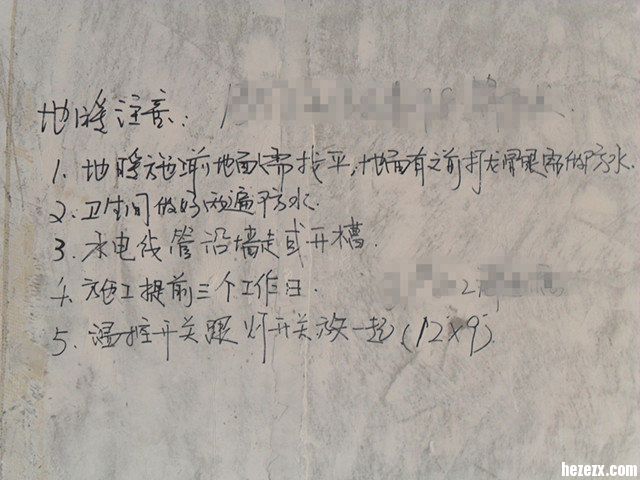 地暖注意:
1. 地暖施工前地面需找平,地面有之前打龙骨眼需做防水.
2. 卫生间做好两遍防水.
3. 水电线管沿墙走或开槽.
4. 施工提前三个工作日.
5. 温控开关跟灯开关放一起(12×9)
hezezx.com